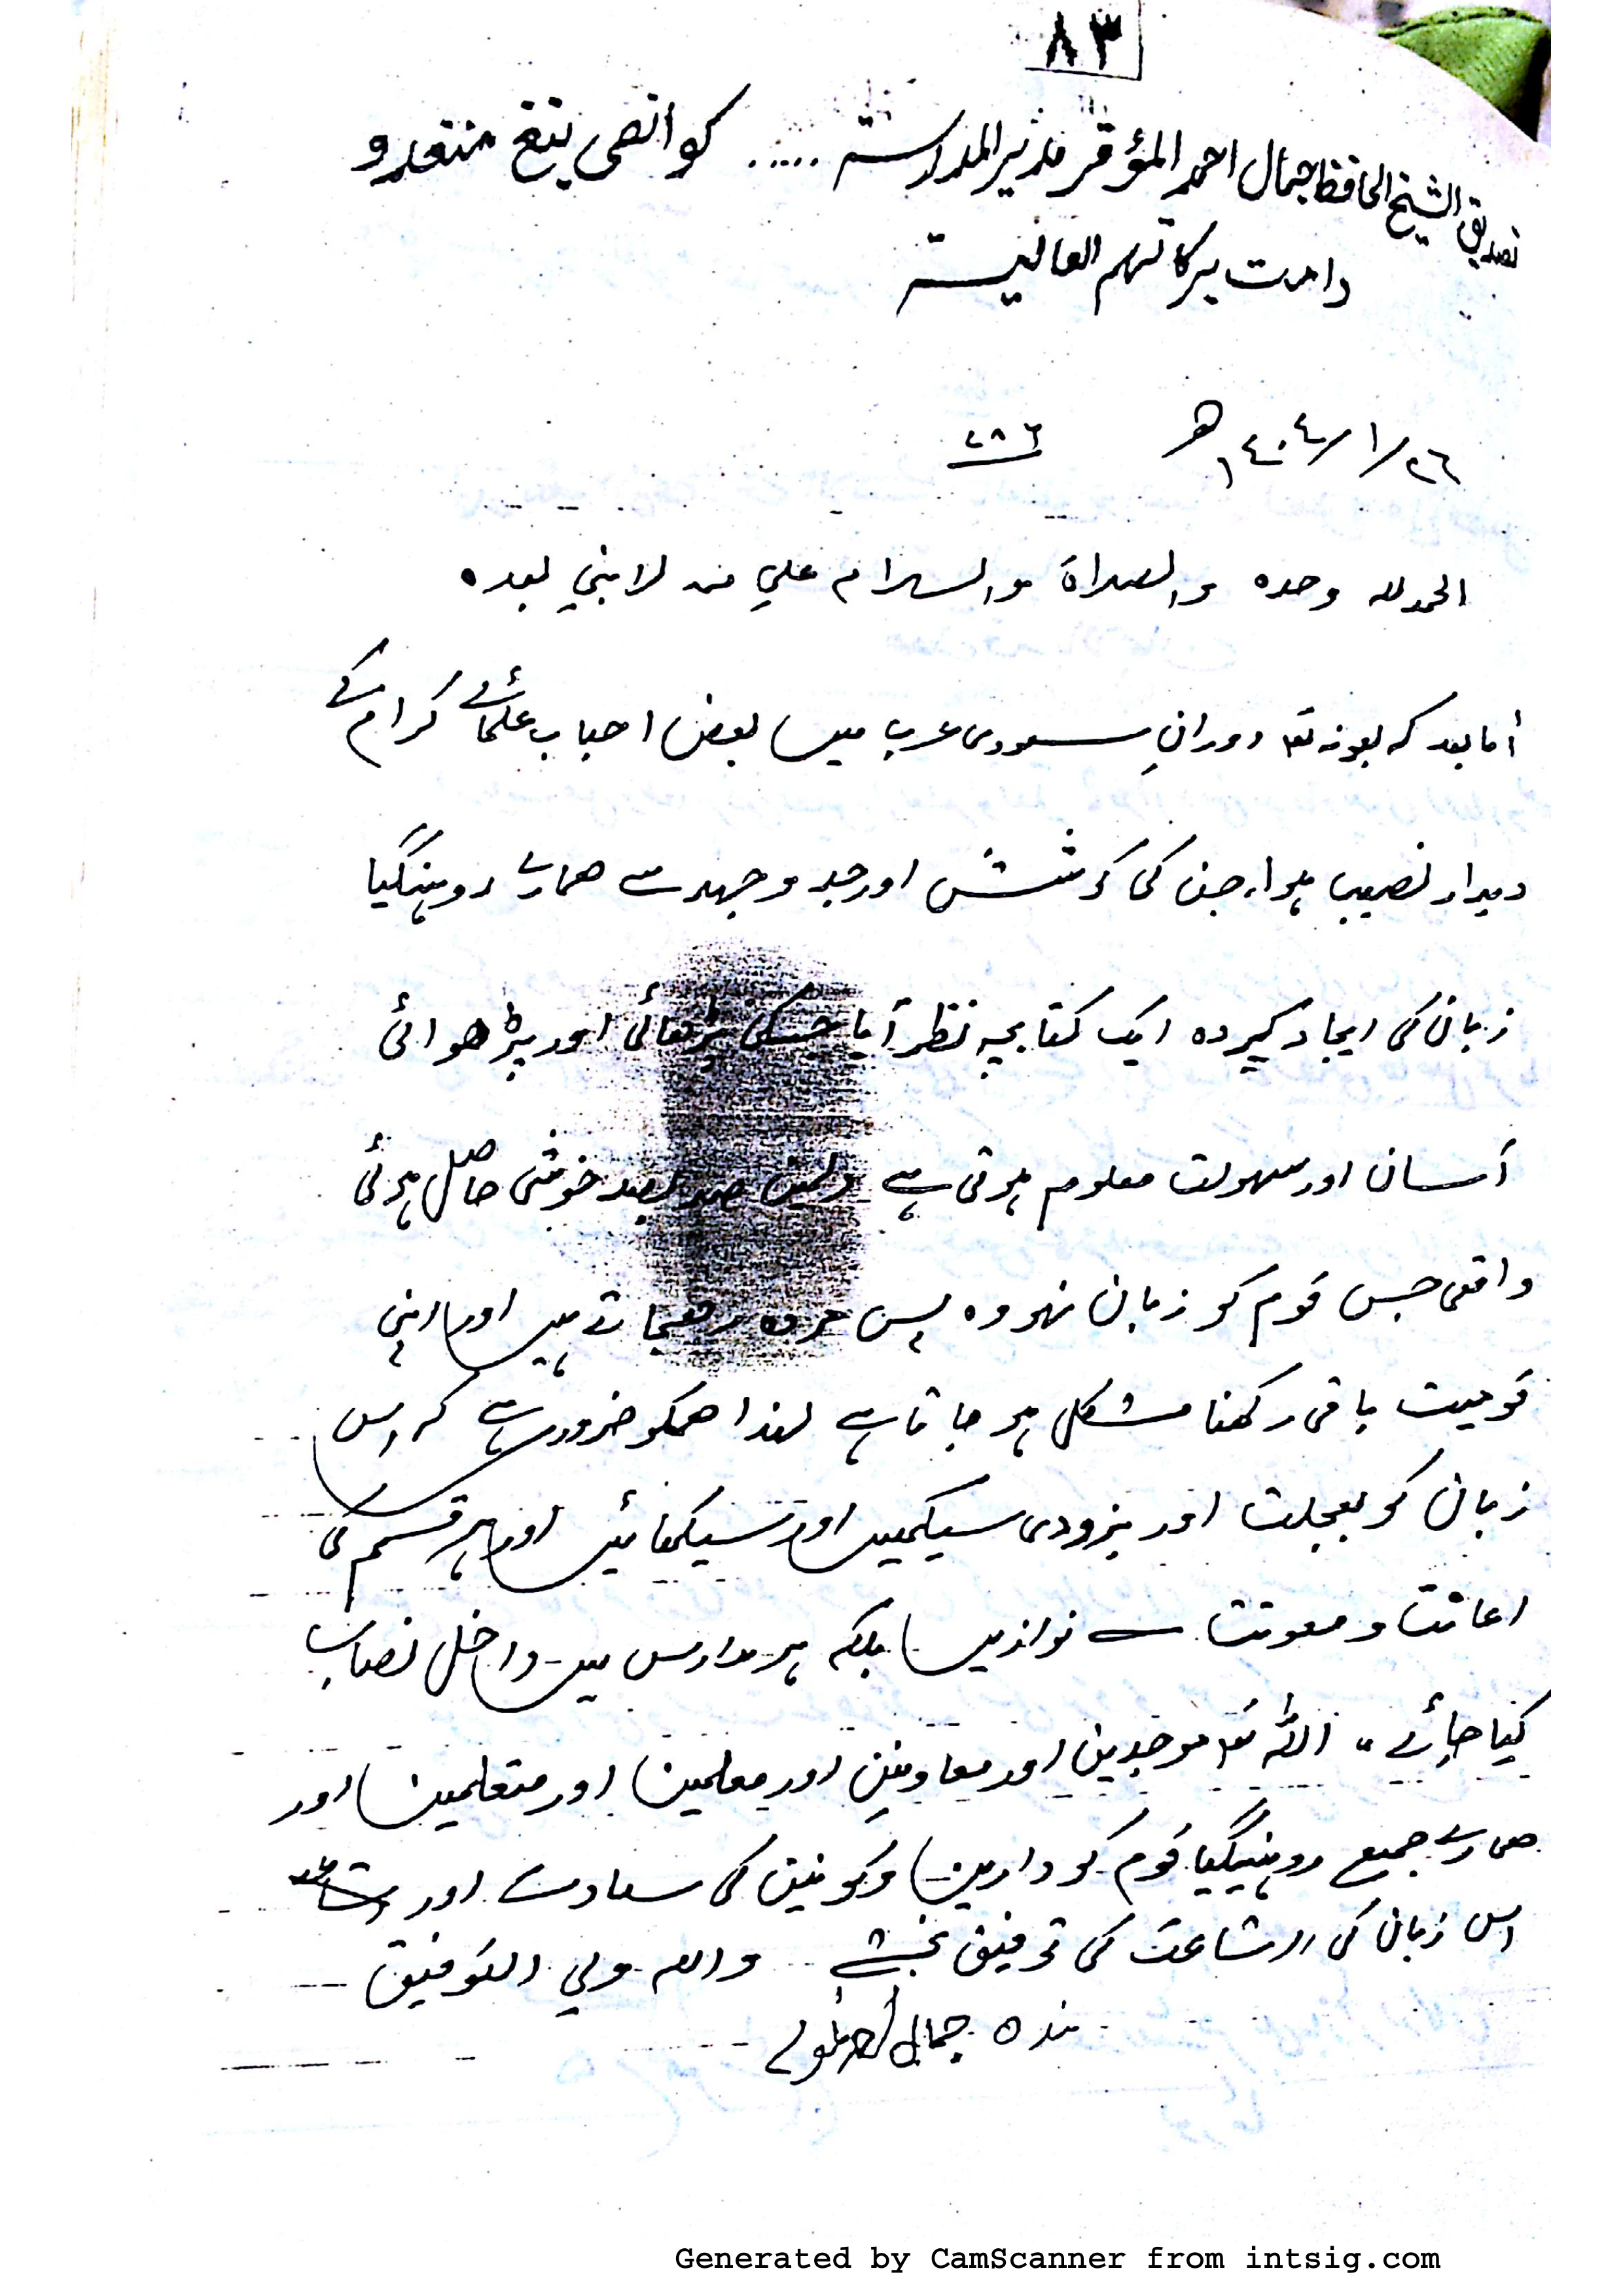 ٨٣
تصديق الشيخ الحافظ جمال احمد المؤقر مدير المدرسة ..... كوانصى ينغ منغدو
دامت بركاتهم العالية
٢٦/١/١٤٠٤ھ ٧٨٦
الحمد لله وحده والصلاة والسلام علي من لا نبي بعده
أما بعد کہ بعونہ تعہ دورانِ سعودی عرب میں بعض احباب علمائے کرام کے
دیدار نصیب ہوا، جن کی کوشش اور جد وجہد سے ھمارے روہنگیا
زبان کی ایجاد کردہ ایک کتابچہ نظر آیا جسکی پڑھائی اور پڑھوائی
آسان اور سہولت معلوم ہوتی ہے صد بصد خوشی حاصل ہوئی
واقعی جس قوم کو زبان نہو وہ پس جاتے ہیں اور اپنی
قومیت باقی رکھنا مشکل ہو جاتا ہے لہذا ھمکو ضرور ہے کہ اس
زبان کو بعجلت اور بزودی سیکھیں اور سیکھائیں اور ہر قسم کی
اعانت ومعونت سے نوازیں بلکہ ہر مدارس میں داخل نصاب
کیا جائے۔ اللہ تعہ موجدین اور معاونین اور معلمین اور متعلمین اور
ھمارے جمیع روہینگیا قوم کو دارین وکونین کی سعادت اور
اس زبان کی اشاعت کی توفیق بخشے والله ولي التوفيق
بندہ جمال احمد
Generated by CamScanner from intsig.com